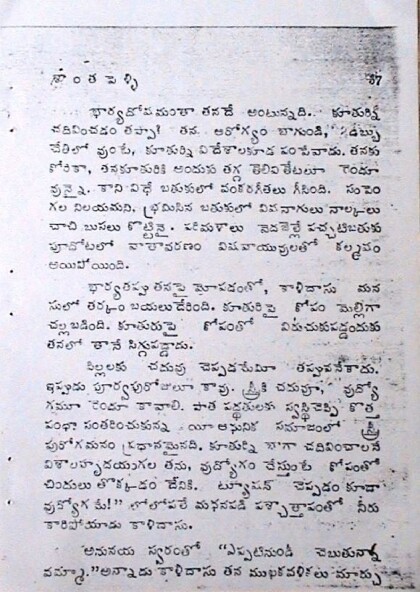 శాంత పెళ్ళి 67
భార్యదోషమంతా తనదే అంటున్నది. కూతుర్ని
చదివించడం తప్పా? తన ఆరోగ్యం బాగుండి, డబ్బు
చేతిలో వుంటే, కూతుర్ని విదేశాలకూడ పంపేవాడు. తనకు
కోరికా, తనకూతురికి అందుకు తగ్గ తెలివితేటలూ రెండూ
వున్నై. కాని విధే బతుకులో వంకరగీతలు గీసింది. సంపెం
గల నిలయమని, భ్రమిసిన బతుకులో విషనాగులు నాల్కలు
చాచి బుసలు కొట్టినై. పరిమళాలు వెదజల్లే పచ్చటిబతుకు
పూదోటలో వాతావరణం విషవాయువులతో కల్మషం
అయిపోయింది.
భార్యతప్పు తనపై మోపడంతో, కాళిదాసు మన
సులో తర్కం బయలుదేరింది. కూతురిపై కోపం మెల్లిగా
చల్లబడింది. కూతురుపై కోపంతో విరుచుకుపడ్డందుకు
తనలో తానే సిగ్గుపడ్డాడు.
పిల్లలకు చదువు చెప్పడమేమీ తప్పుపనికాదు.
ఇప్పుడు పూర్వపురోజులూ కావు. స్త్రీకి చదువూ, వుద్యో
గమూ రెండూ కావాలి. పాత పద్ధతులకు స్వస్తిచెప్పి కొత్త
పంథా సంతరించుకున్న యీ ఆధునిక సమాజంలో స్త్రీ
పురోగమనం ప్రధానమైనది. కూతుర్ని బాగా చదివించాలనే
విశాలహృదయంగల తను, వుద్యోగం చేస్తుంటే కోపంతో
చిందులు తొక్కడం దేనికి. ట్యూషన్ చెప్పడం కూడా
వుద్యోగమే!" లోలోపలే మధనపడి పశ్చాత్తాపంతో నీరు
కారిపోయాడు కాళిదాసు.
అనునయ స్వరంతో "ఎప్పటినుండి చెబుతున్నా
వమ్మా." అన్నాడు కాళిదాసు తన ముఖకవళికలు మార్చు